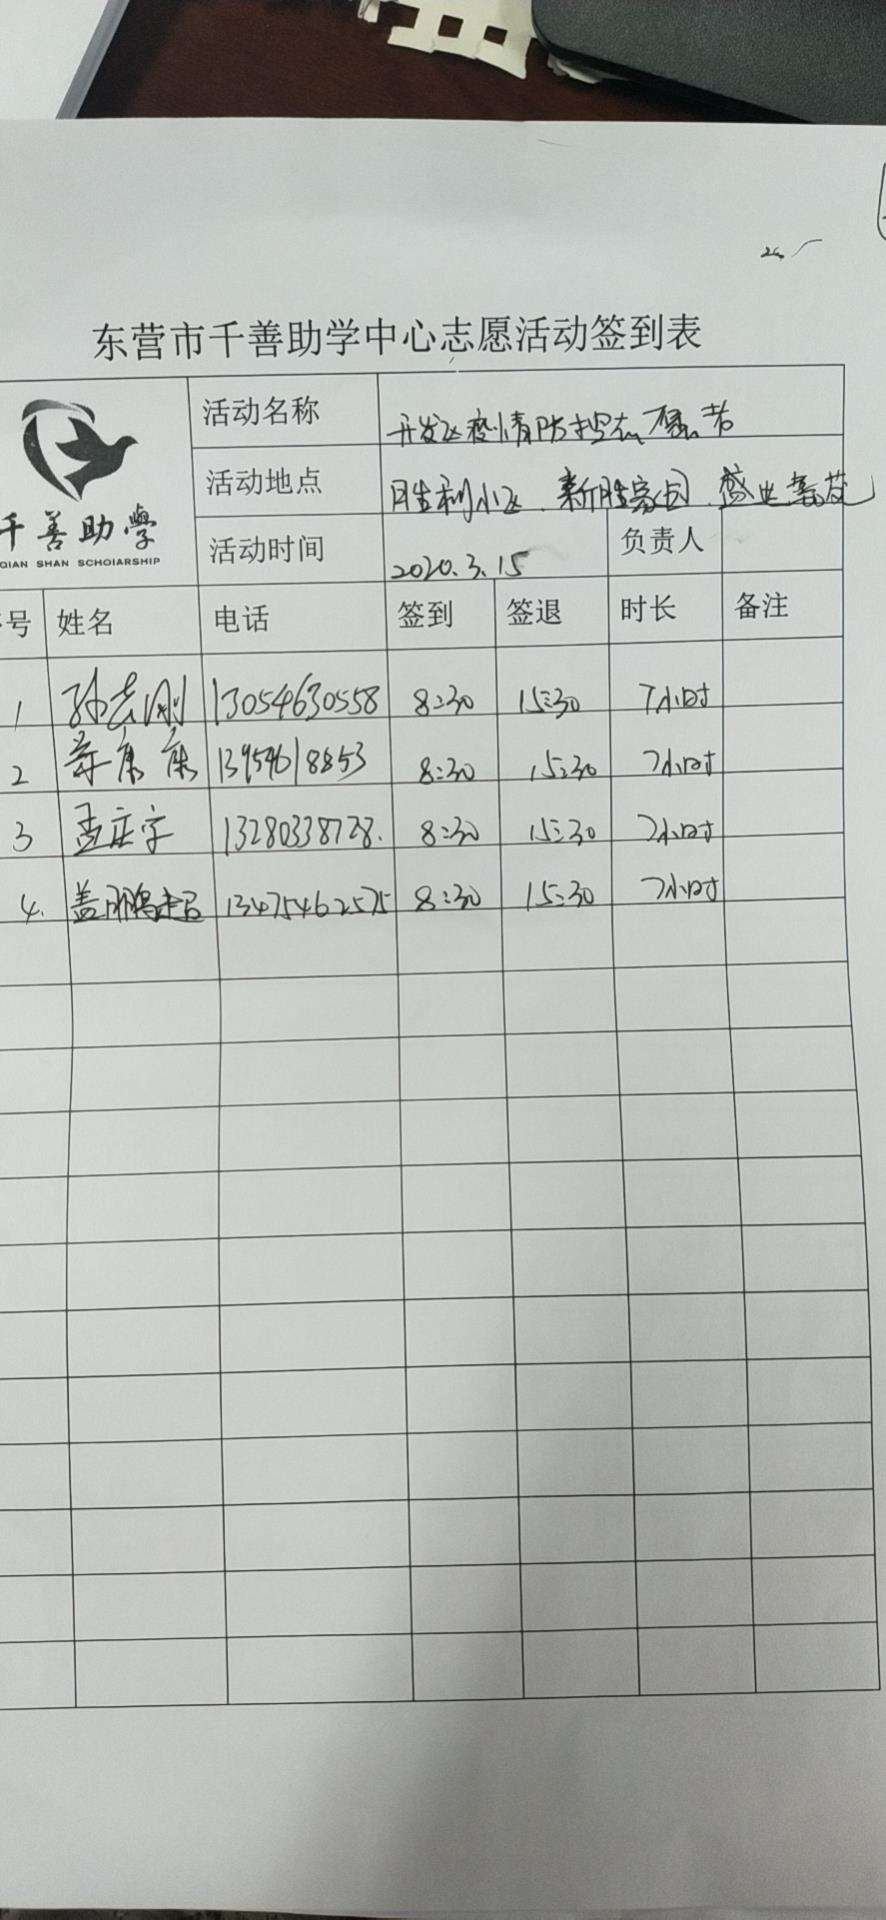 东营市千善助学中心志愿活动签到表
千善助學
QIAN SHAN SCHOIARSHIP
活动名称 开发区疫情防控志愿者
活动地点 胜利小区、新胜家园、盛世
活动时间 2020.3.15 负责人
号 姓名 电话 签到 签退 时长 备注
1 孙志刚 13054630558 8:30 15:30 7小时
2 康康 13954618853 8:30 15:30 7小时
3 孟庄宇 13280338728. 8:30 15:30 7小时
4. 盖鹏超 13475462575 8:30 15:30 7小时